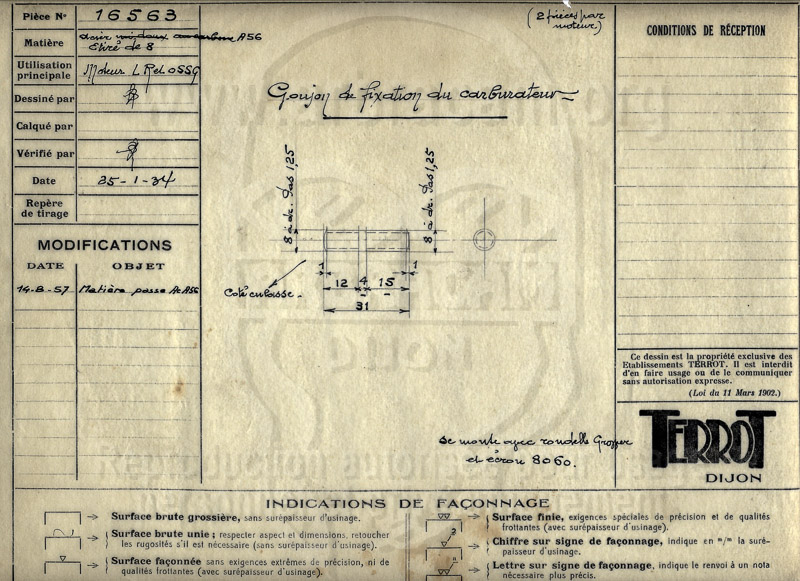 Pièce No 16563
Matière acier A56
Etiré de 8
Utilisation principale Moteur L
Dessiné par
Calqué par
Vérifié par
Date 25-1-34
Repère de tirage
MODIFICATIONS
DATE OBJET
14-8-57 Matière passe Ac A56
(2 pièces par
moteur)
Goujon de fixation du carburateur
8 à dr. pas 1,25
8 à dr. pas 1,25
1 1
12 4 15
31
Coté culasse
se monte avec rondelle Grower
et écrou 8060.
CONDITIONS DE RÉCEPTION
Ce dessin est la propriété exclusive des
Etablissements TERROT. Il est interdit
d'en faire usage ou de le communiquer
sans autorisation expresse.
(Loi du 11 Mars 1902.)
TERROT
DIJON
INDICATIONS DE FAÇONNAGE
Surface brute grossière, sans surépaisseur d'usinage.
Surface brute unie; respecter aspect et dimensions, retoucher
les rugosités s'il est nécessaire (sans surépaisseur d'usinage).
Surface façonnée sans exigences extrêmes de précision, ni de
qualités frottantes (avec surépaisseur d'usinage).
Surface finie, exigences spéciales de précision et de qualités
frottantes (avec surépaisseur d'usinage).
Chiffre sur signe de façonnage, indique en m/m la suré-
paisseur d'usinage.
Lettre sur signe de façonnage, indique le renvoi à un nota
nécessaire plus précis.